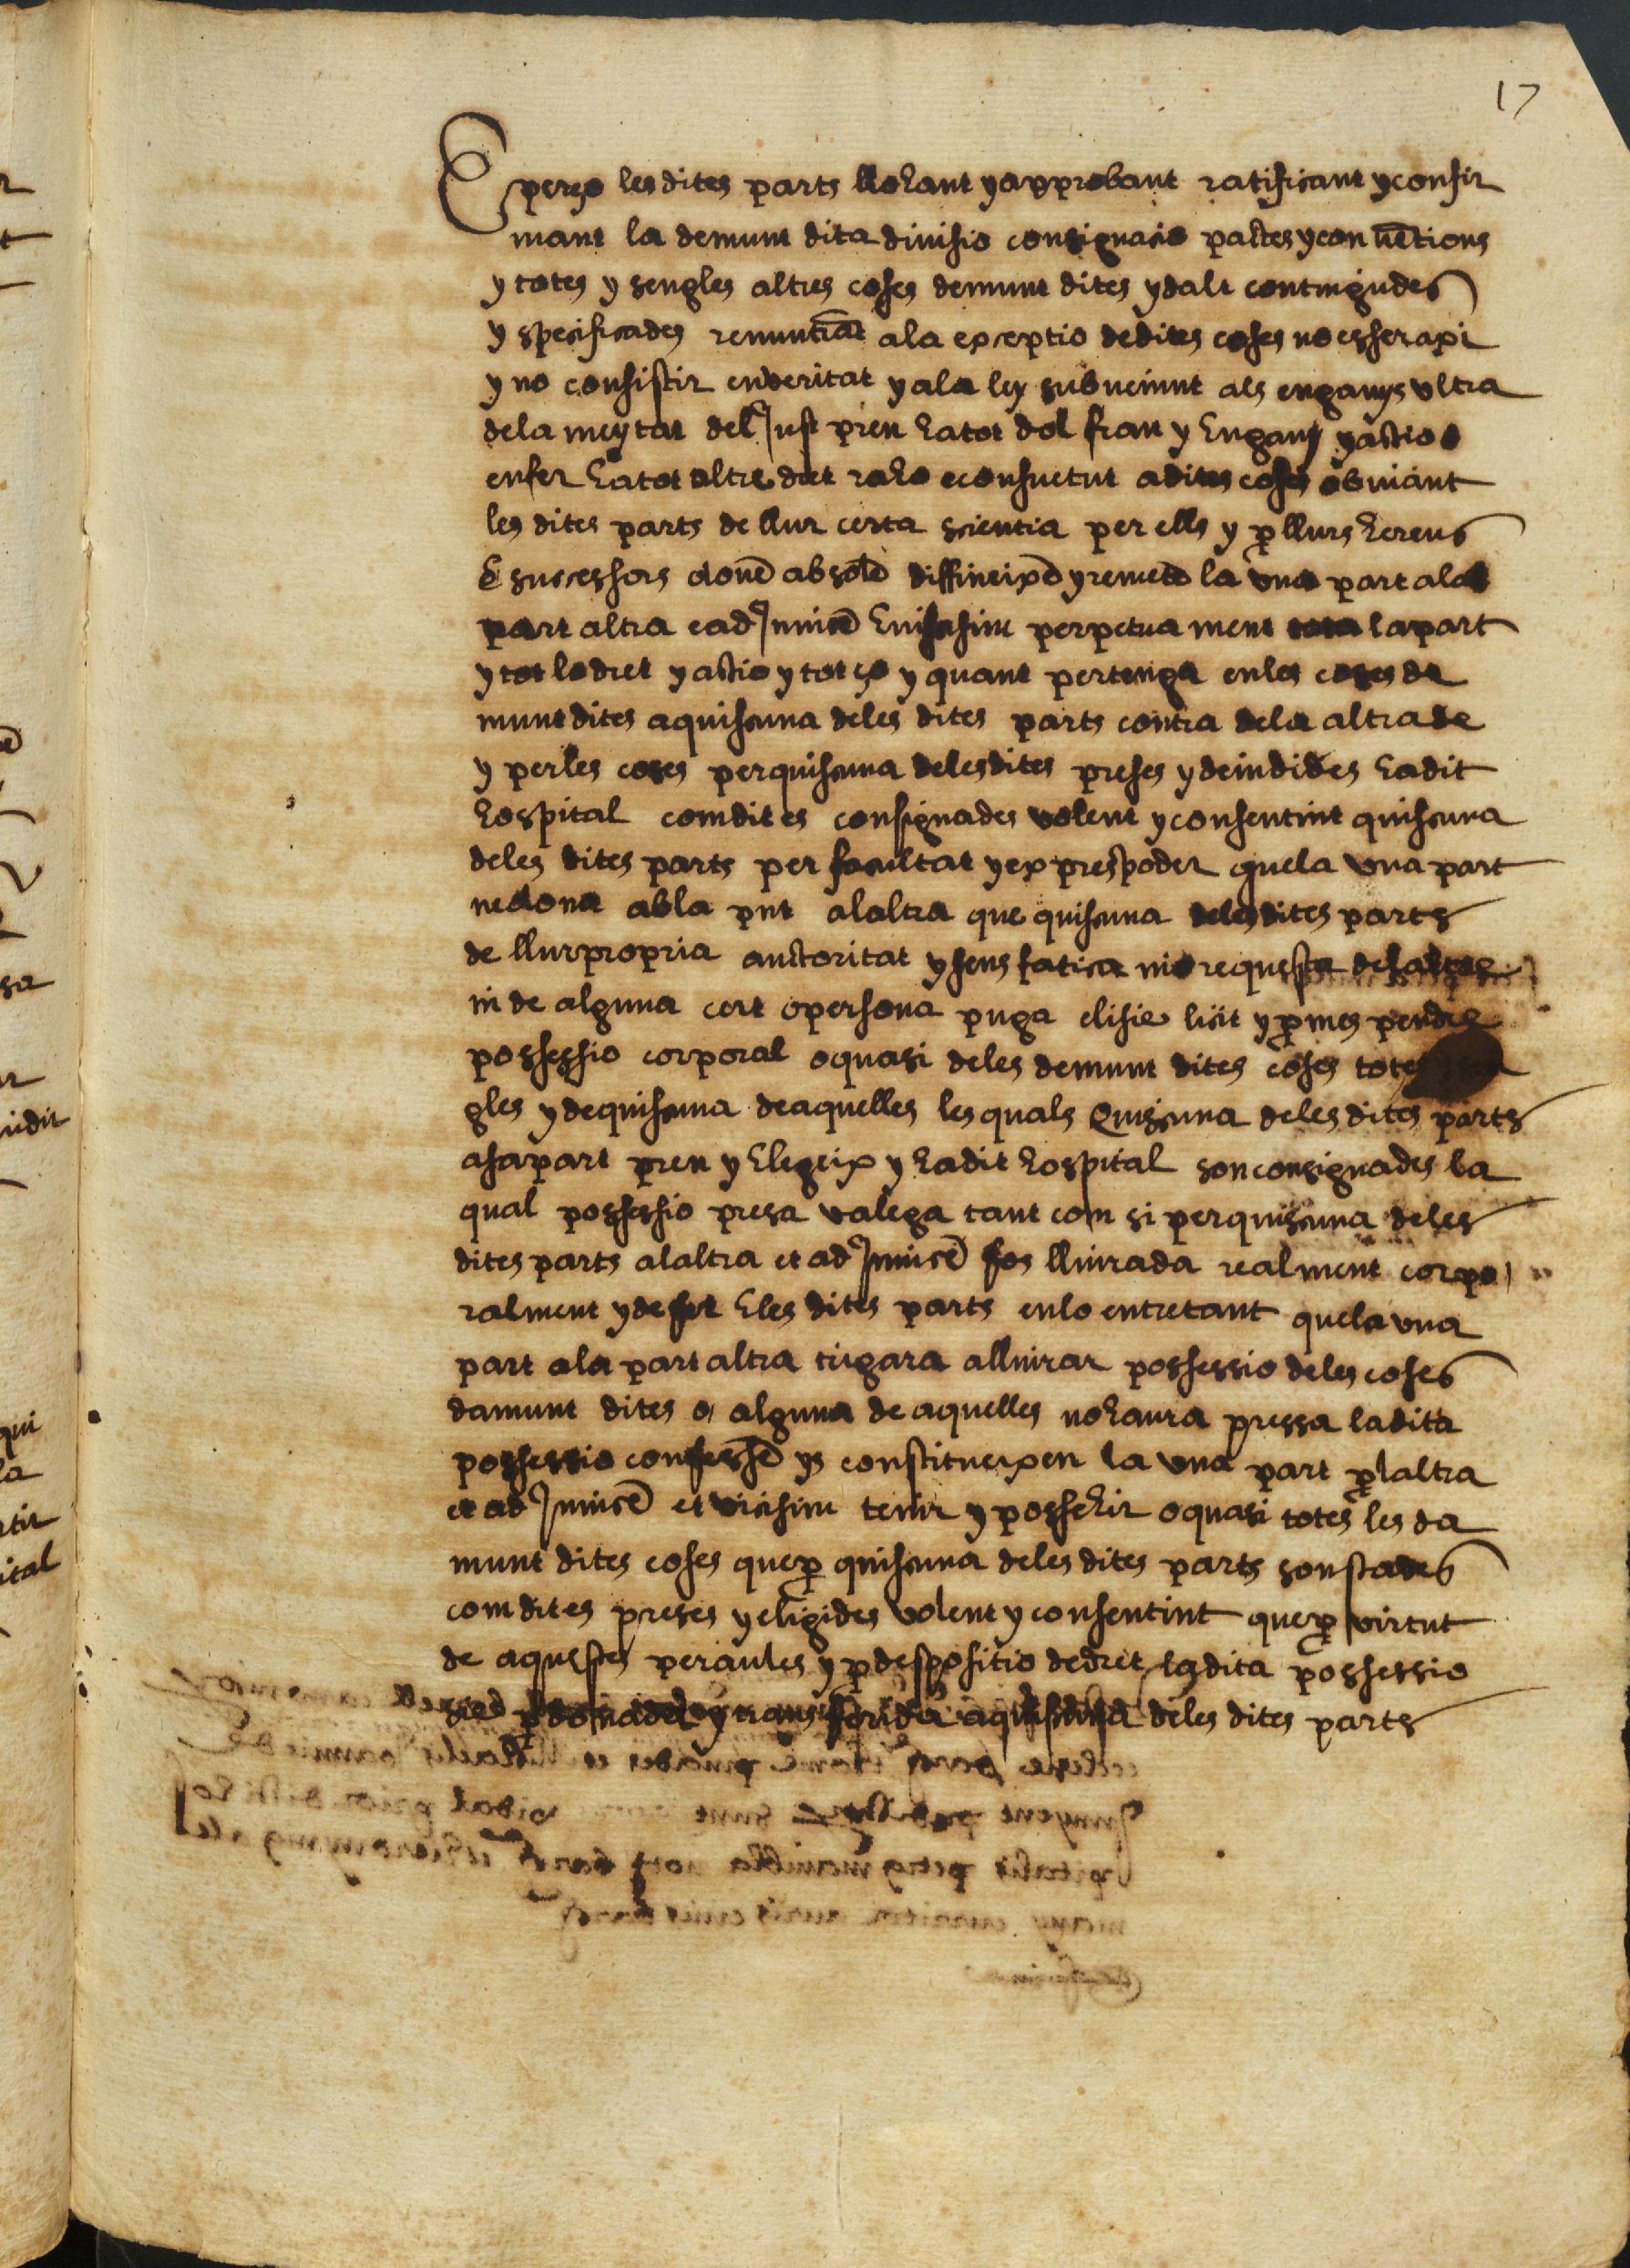 17
E perço les dites parts llohant y approbant ratificant y confir
mant la demunt dita divisio consignacio pactes y convẽtions
y totes y sengles altres coses demunt dites y dalt contingudes
y specificades renuntiãt a la exceptio de dites coses no esser axi
y no consistir en veritat y a la ley subvenint als enganys ultra
de la meytat del just preu ha tot dol frau y engany y actio
en fer ha tot altre dret raho e consuetut a dites coses obviant
les dites parts de llur certa scientia per ells y p llurs hereus
E successors donẽ absolẽ diffineixẽ y remetẽ la una part a la
part altra e ad invicẽ et vicissim perpetuament tota la part
y tot lo dret y actio y tot ço y quant pertenga en les coses de
munt dites a quiscuna de les dites parts contra de la altra de
y per les coses per quiscuna de les dites preses y deindides ha dit
hospital com dit es consignades volent y consentint quiscuna
de les dites parts per facultat y expres poder que la una part
ne dona ab la pnt a l altra que quiscuna de les dites parts
de llur propria auctoritat y sens fatica ni requesta de
ni de alguna cort o persona puga e li sie licit y p mes pendre
possessio corporal o quasi de les demunt dites coses totes
gles y de quiscuna de aquelles les quals Quiscuna de les dites parts
a sa part pren y elegeix y ha dit hospital son consignades la
qual possessio presa valega tant com si per quiscuna de les
dites parts a l altra et ad invicẽ fos lliurada realment corpo
ralment y de fet E les dites parts en lo entretant que la una
part a la part altra tirgara a lliurar possessio de les coses
damunt dites o alguna de aquelles no haura pressa la dita
possessio confessẽ y s constitueixen la una part p l altra
et ad invicẽ et vicisim tenir y possehir o quasi totes les da
munt dites coses que p quiscuna de les dites parts son stades
com dit es preses y eligides volent y consentint que p virtut
de aquestes peraules y p despositio de dret la dita possessio
sie donades y transferida a quiscuna de les dites parts